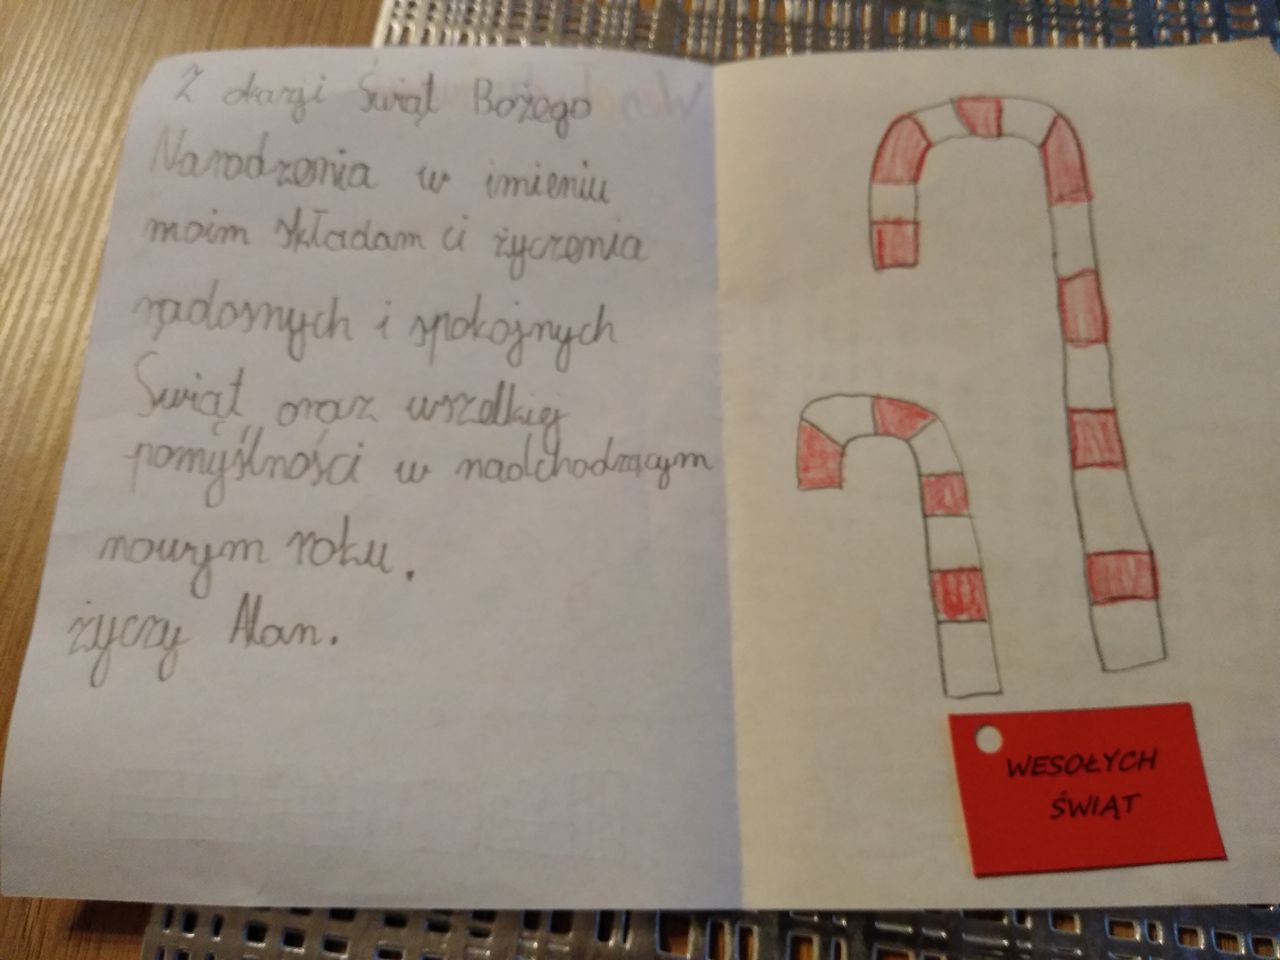 Z okazji Świąt Bożego
Narodzenia w imieniu
moim składam ci życzenia
radosnych i spokojnych
Swiąt oraz wszelkiej
pomyślności w nadchodzącym
nowym roku.
życzy Alan.
WESOŁYCH
ŚWIĄT